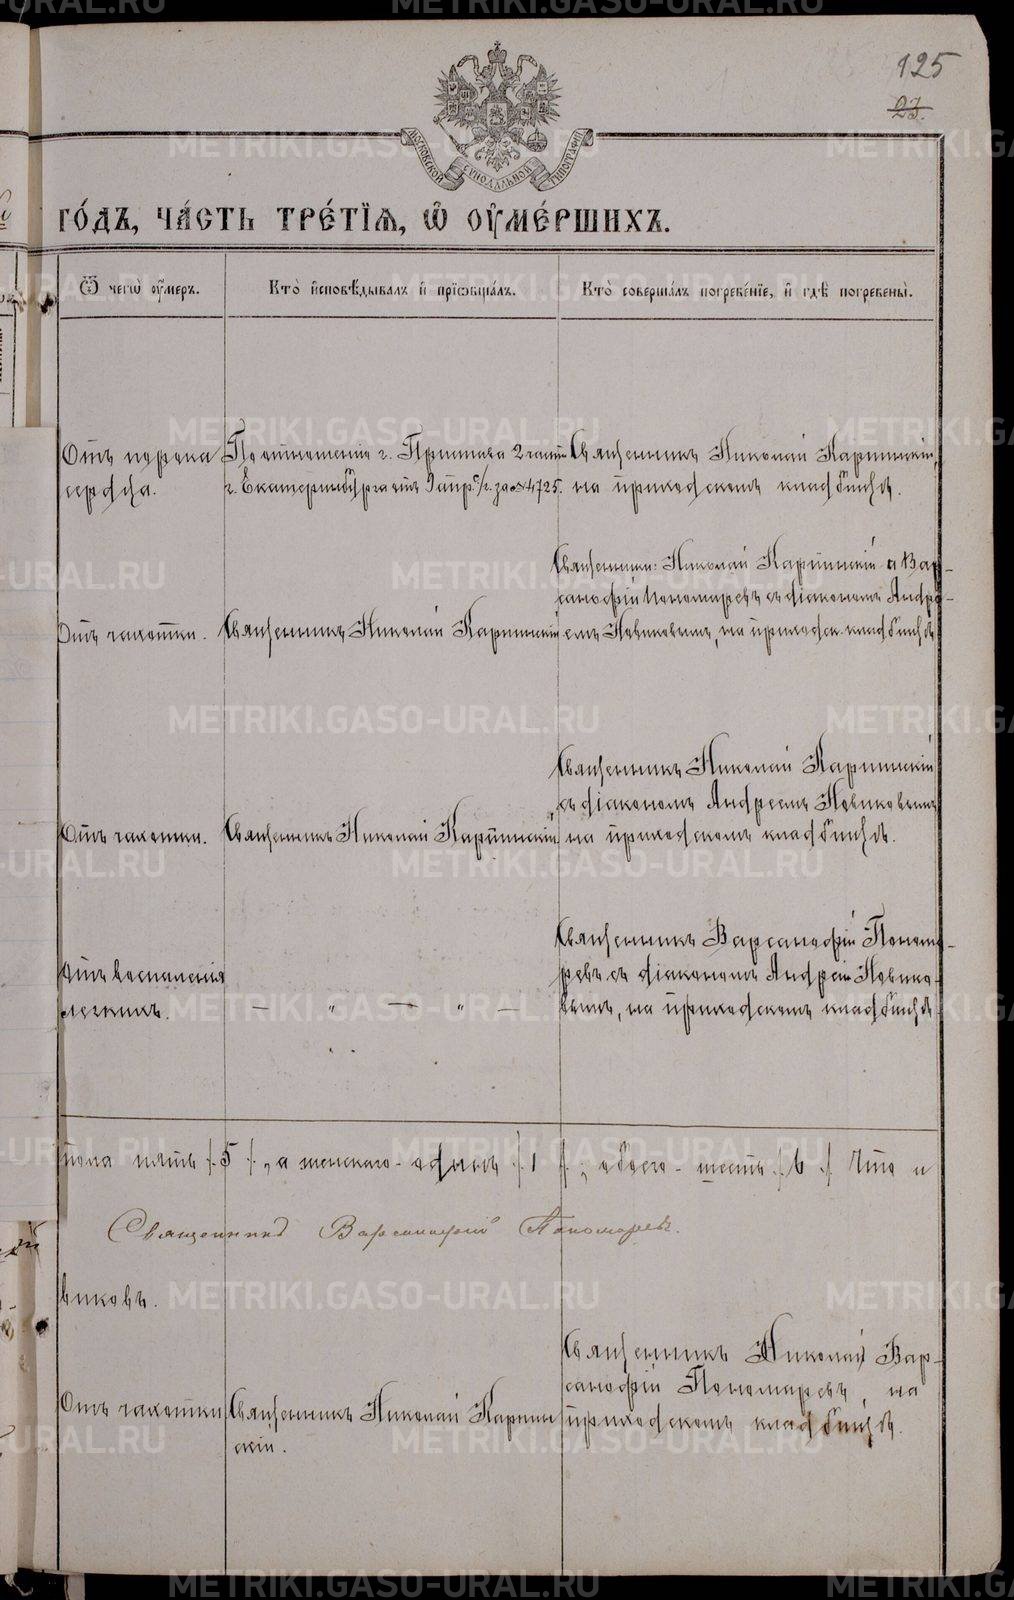 125
23.
МОСКОВСКОЙ СѴНОДАЛЬНОЙ ТИПОГРАФІИ
ГО́ДЪ, ЧА́СТЬ ТРЕ́ТІѦ, Ѡ҆ ОУ҆МЕ́РШИХЪ.
Ѿ чегѡ̀ оу҆́меръ.
Кто̀ и҆сповѣ́дывалъ и҆ прїѡбща́лъ.
Кто̀ соверша́лъ погребе́нїе, и҆ гдѣ̀ погребены̀.
Отъ порока
сердца.
По отношенію г. Пристава 2 части
г. Екатеринбурга отъ 9 апр. с/г. за № 4725.
Священникъ Николай Карпинскій,
на приходскомъ кладбищѣ.
Отъ чахотки.
Священникъ Николай Карпинскій
Священники: Николай Карпинскій и Вар-
санофій Пономаревъ съ діакономъ Андре-
емъ Новиковымъ, на приходск. кладбищѣ
Отъ чахотки.
Священникъ Николай Карпинскій
Священникъ Николай Карпинскій
съ діакономъ Андреемъ Новиковымъ
на приходскомъ кладбищѣ.
Отъ воспаленія
легкихъ.
— „ — „ —
Священникъ Варсанофій Понома-
ревъ съ діакономъ Андреемъ Новико-
вымъ, на приходскомъ кладбищѣ
пола пять /5/, а женскаго - одинъ /1/, обоего - шесть /6/ Что и
Священникъ Варсанофій Пономаревъ.
виковъ.
Отъ чахотки
Священникъ Николай Карпин
скій.
Священникъ Николай Вар-
санофій Пономаревъ, на
приходскомъ кладбищѣ.
METRIKI.GASO-URAL.RU